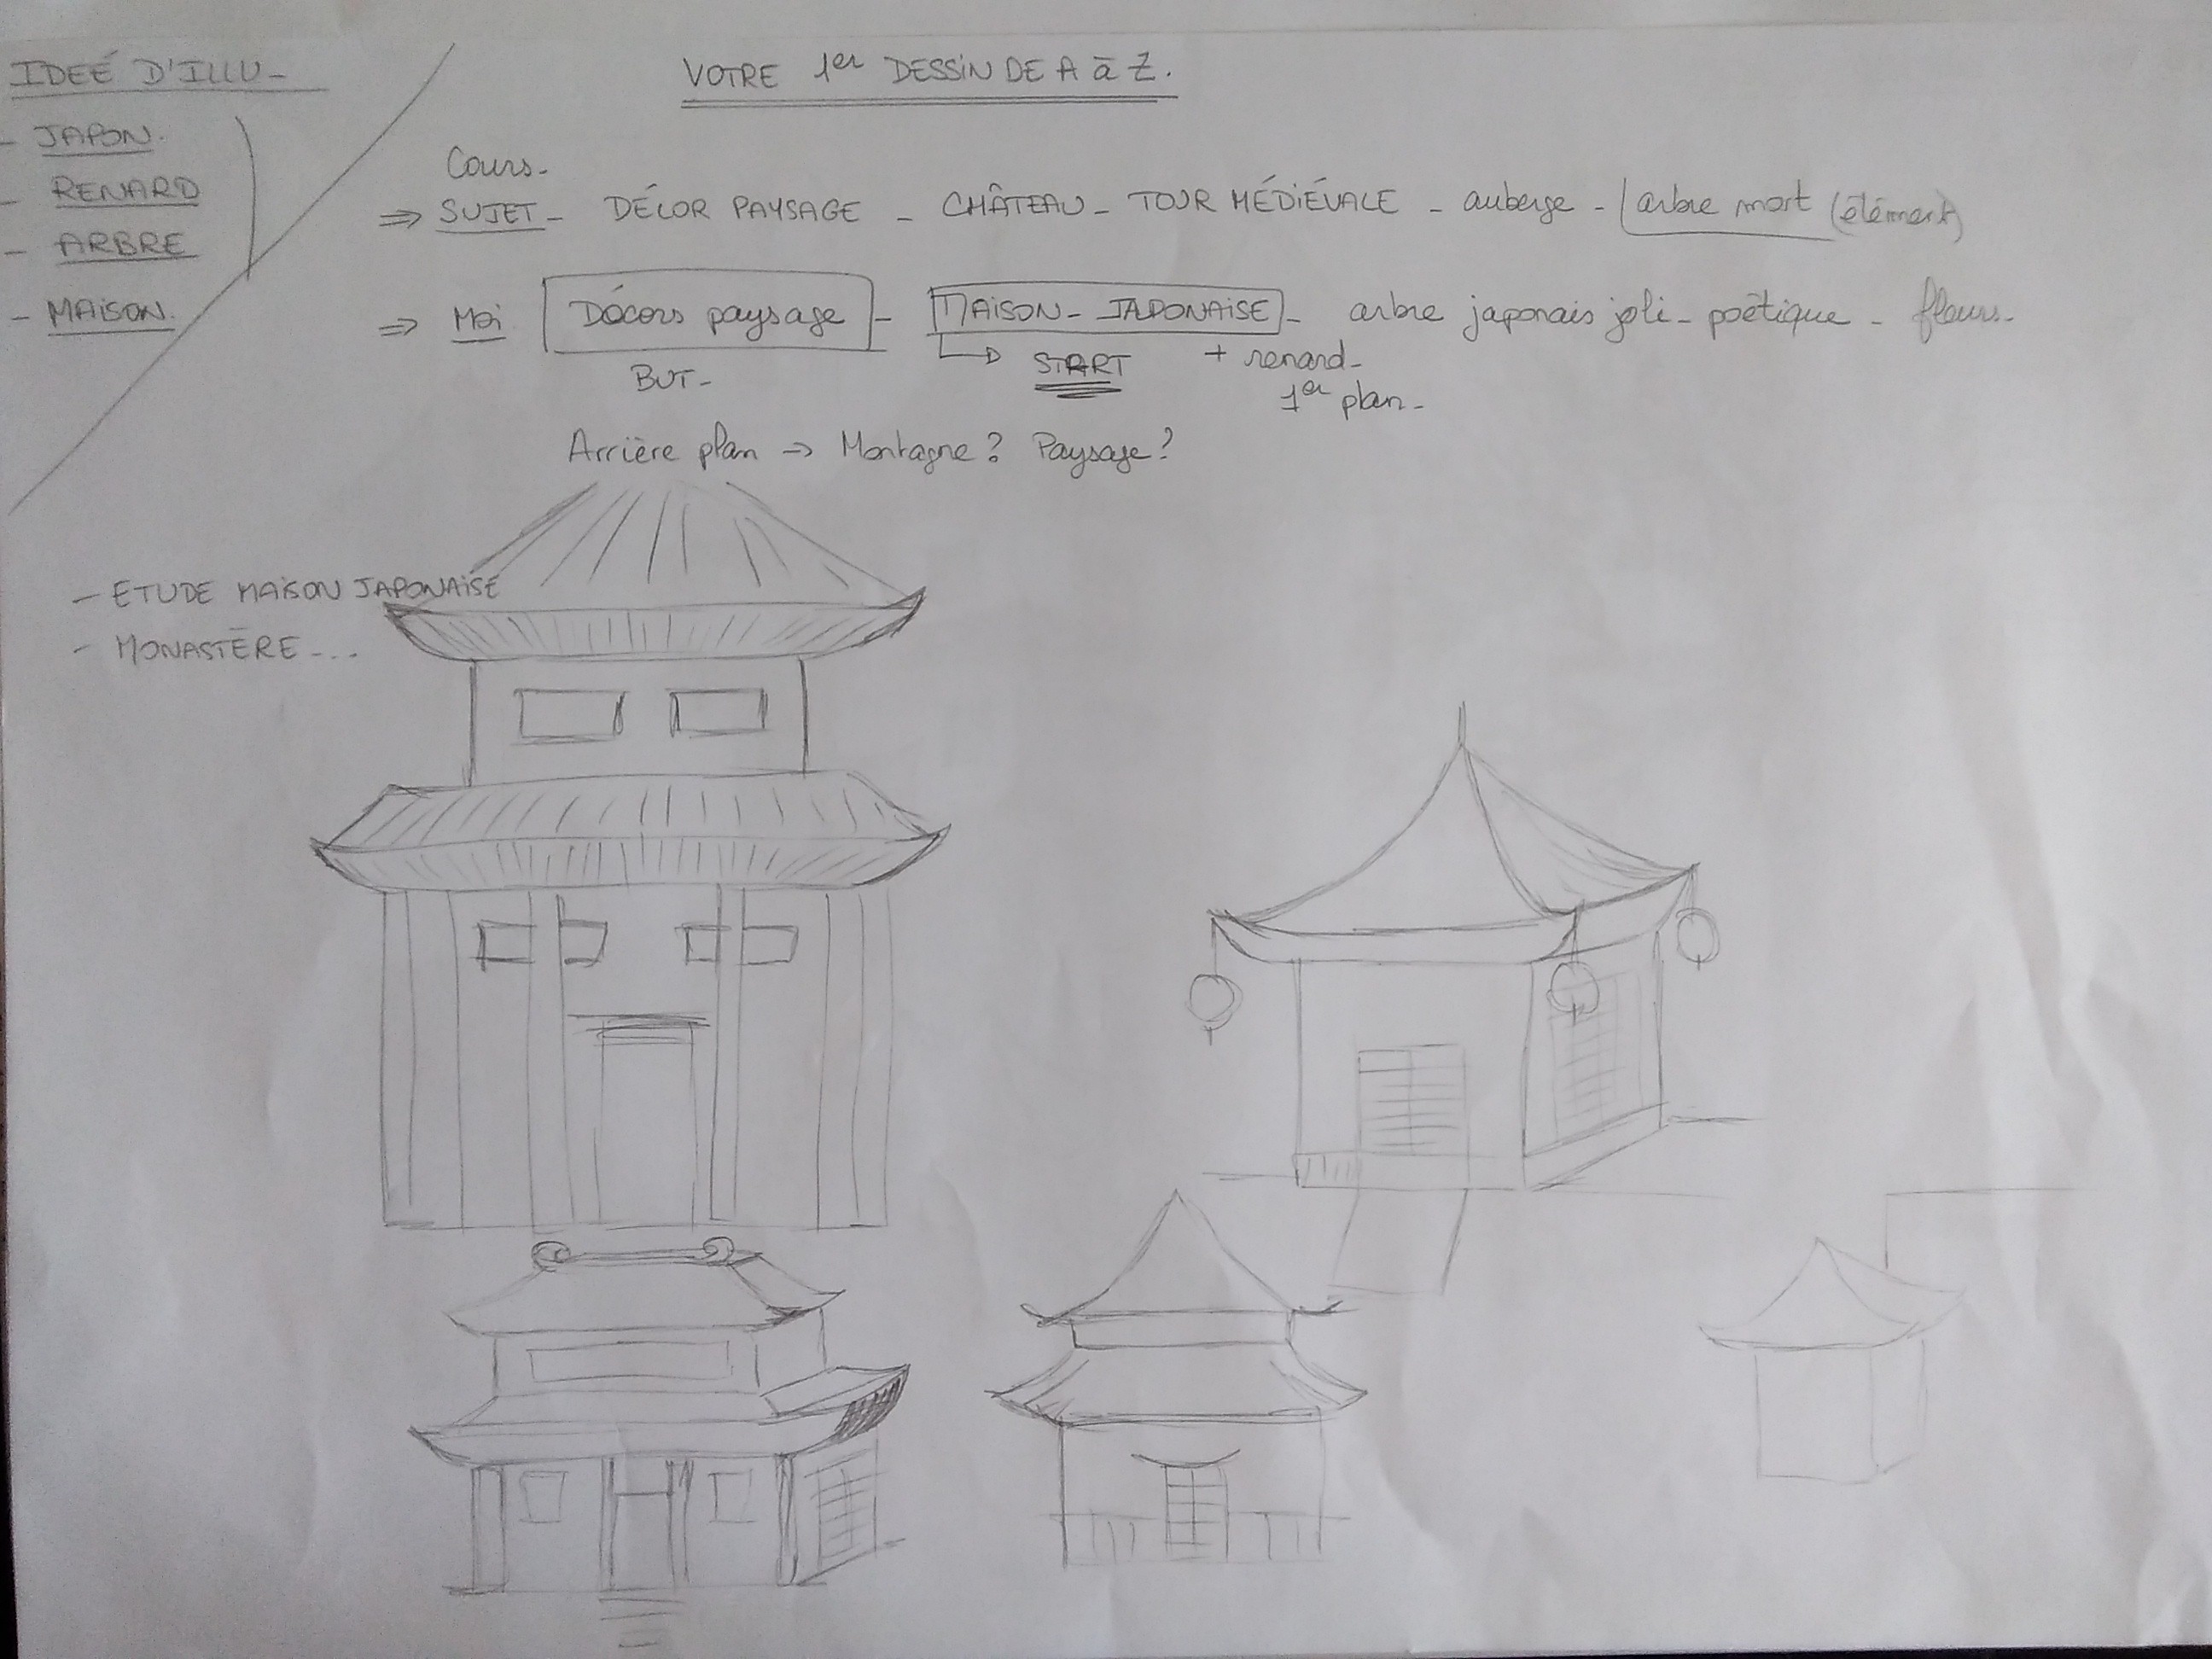 IDEÉ D'ILLU -
- JAPON.
- RENARD
- ARBRE
- MAISON.
VOTRE 1er DESSIN DE A à Z.
Cours -
⇒ SUJET - DÉCOR PAYSAGE - CHÂTEAU - TOUR MÉDIÉVALE - auberge - arbre mort (élément)
⇒ Moi Décors paysage - MAISON - JAPONAISE - arbre japonais joli - poétique - fleurs -
BUT -
→ START
+ renard -
1er plan -
Arrière plan → Montagne ? Paysage ?
- ETUDE MAISON JAPONAISE
- MONASTÈRE - ...